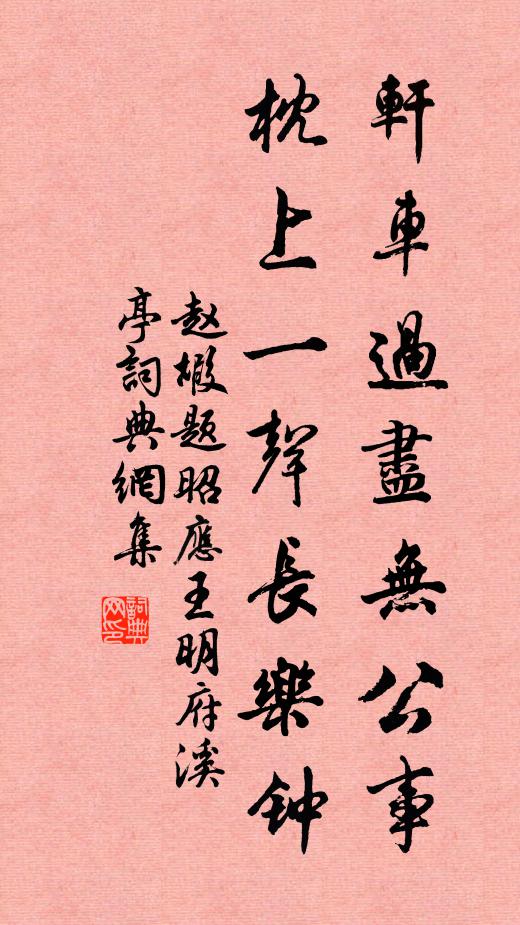 軒車過盡無公事
枕上一聲長樂钟
赵嘏题昭應王明府溪
亭詞典網集
詞典
网印